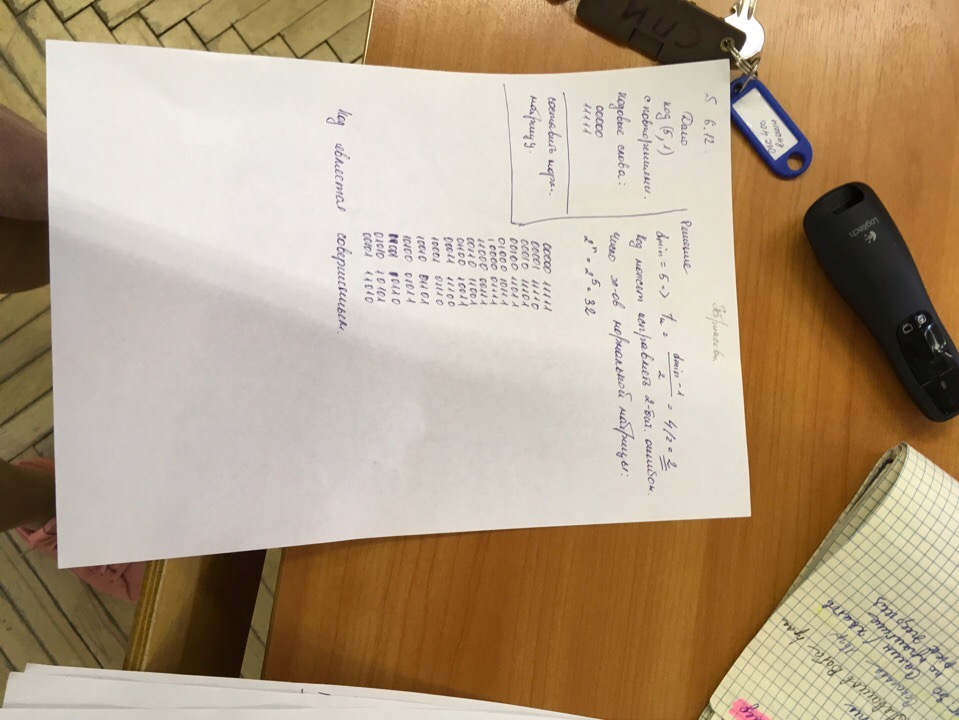 Logitech
5 6.12.
Дано
код (5,1)
с повторениями.
кодовые слова:
00000
11111
составить норм.
матрицу.
Решение
dmin = 5 => tи = dmin - 1 / 2 = 4/2 = 2
Код может исправлять 2-бит. ошибок.
Число эл-ов нормальной матрицы:
2^n = 2^5 = 32
00000 11111
00001 11110
00010 11101
00100 11011
01000 10111
10000 01111
11000 00111
00110 11001
01100 10011
00011 11100
10001 01110
10010 01101
10100 01011
01001 10110
01010 10101
00101 11010
Код является совершенным.